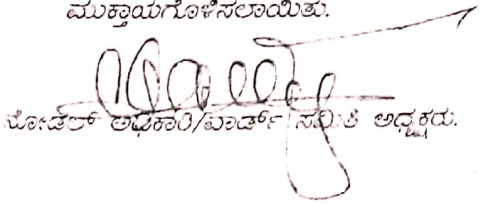 ಮುಕ್ತಾಯಗೊಳಿಸಲಾಯಿತು.
ನೋಡಲ್ ಅಧಿಕಾರಿ/ವಾರ್ಡ್ ಸಮಿತಿ ಅಧ್ಯಕ್ಷರು.